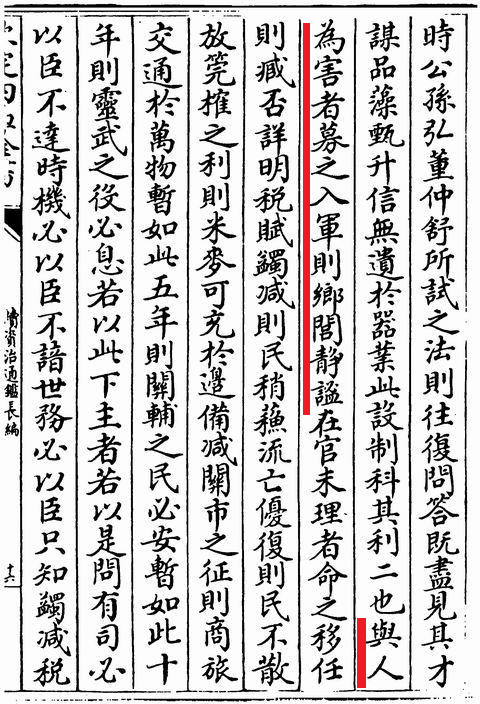 時公孫弘董仲舒所試之法則往復問答既盡見其才
謀品藻甄升信無遺於器業此設制科其利二也與人
為害者募之入軍則鄉閭靜謐在官未理者命之移任
則臧否詳明税賦蠲减則民稍蘓流亡優復則民不散
放筦榷之利則米麥可充於邊備减關市之征則商旅
交通於萬物暫如此五年則關輔之民必安暫如此十
年則靈武之役必息若以此下主者若以是問有司必
以臣不達時機必以臣不諳世務必以臣只知蠲减税
續資治通鑑長編
十六